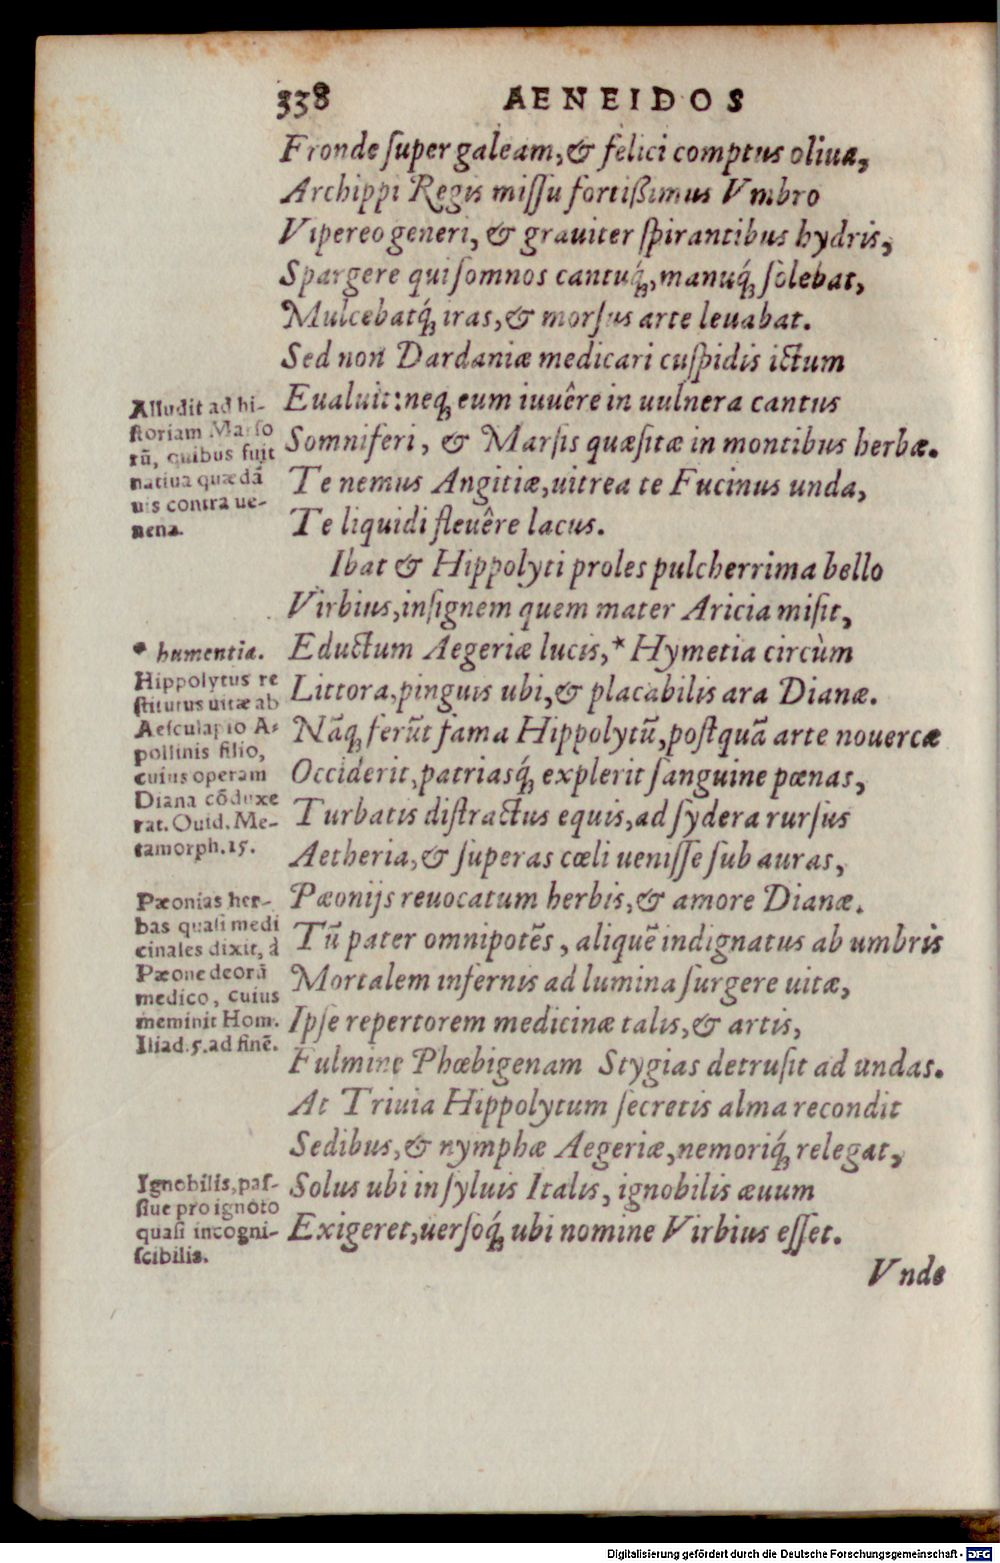 338 AENEIDOS
Fronde ſuper galeam, & felici comptus oliuæ,
Archippi Regis miſſu fortißimus Vmbro
Vipereo generi, & grauiter ſpirantibus hydris,
Spargere qui ſomnos cantuq́;, manuq́; ſolebat,
Mulcebatq́; iras, & morſus arte leuabat.
Sed non Dardaniæ medicari cuſpidis ictum
Eualuit: neq; eum iuuêre in uulnera cantus
Somniferi, & Marſis quæſitæ in montibus herbæ.
Te nemus Angitiæ, uitrea te Fucinus unda,
Te liquidi fleuêre lacus.
Alludit ad hi-
ſtoriam Marſo
rũ, quibus fuit
natiua quædã
uis contra ue-
nena.
Ibat & Hippolyti proles pulcherrima bello
Virbius, inſignem quem mater Aricia miſit,
Eductum Aegeriæ lucis, * Hymetia circùm
Littora, pinguis ubi, & placabilis ara Dianæ.
Nãq; ferũt fama Hippolytũ, poſtquã arte nouercæ
Occiderit, patriasq́; explerit ſanguine pœnas,
Turbatis diſtractus equis, ad ſydera rurſus
Aetheria, & ſuperas cœli ueniſſe ſub auras,
Pæonijs reuocatum herbis, & amore Dianæ.
Tũ pater omnipotẽs, aliquẽ indignatus ab umbris
Mortalem infernis ad lumina ſurgere uitæ,
Ipſe repertorem medicinæ talis, & artis,
Fulmine Phœbigenam Stygias detruſit ad undas.
At Triuia Hippolytum ſecretis alma recondit
Sedibus, & nymphæ Aegeriæ, nemoriq́; relegat,
Solus ubi in ſyluis Italis, ignobilis æuum
Exigeret, uerſoq́; ubi nomine Virbius eſſet.
* humentia.
Hippolytus re
ſtitutus uitæ ab
Aeſculapio A-
pollinis filio,
cuius operam
Diana cõduxe
rat. Ouid. Me-
tamorph. 15.
Pæonias her-
bas quaſi medi
cinales dixit, à
Pæone deorũ
medico, cuius
meminit Hom.
Iliad. 5. ad finẽ.
Ignobilis, paſ-
ſiue pro ignoto
quaſi incogni-
ſcibilis.
Vnde
Digitalisierung gefördert durch die Deutsche Forschungsgemeinschaft - DFG